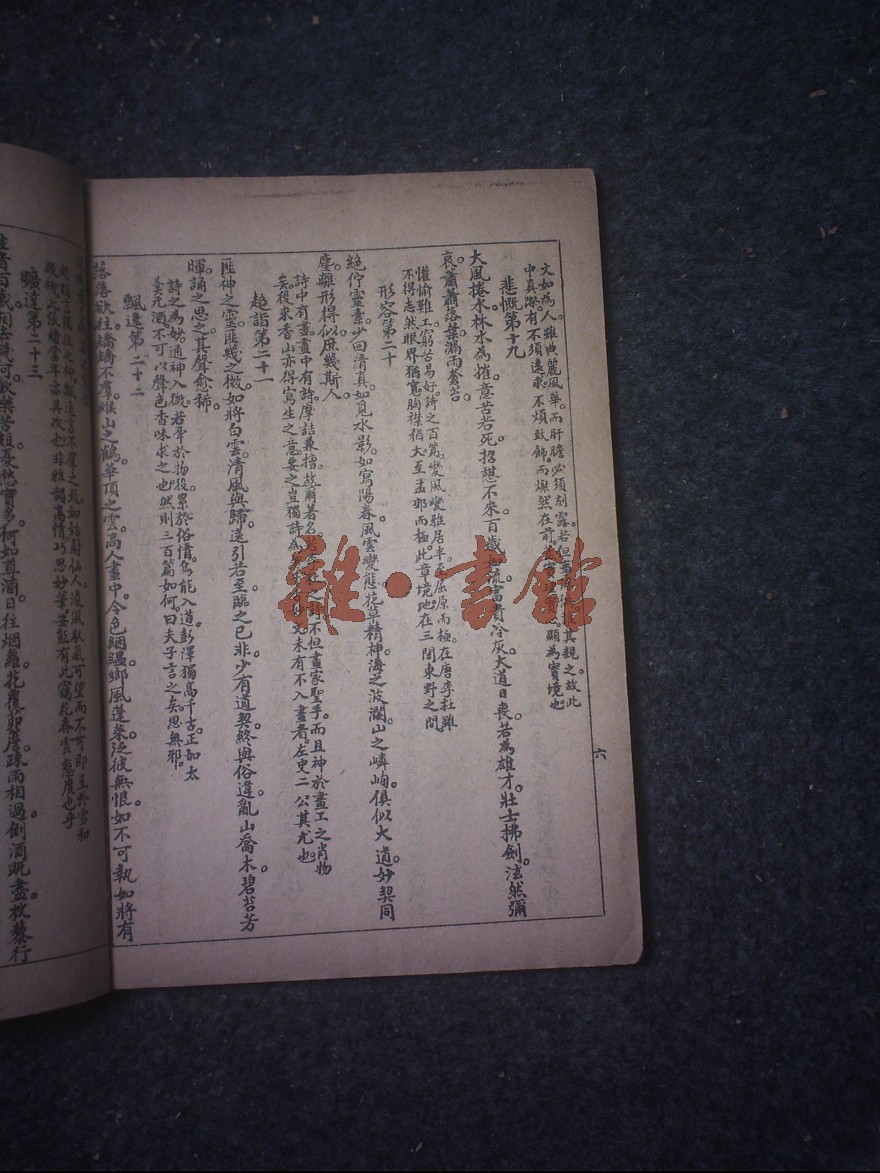 文如為人雖典麗風華而肝膽必須刻露若但事
其貌之故此
中真際有不須遠求不煩致飾而煥然在前
顯為實境也
悲慨第十九
大風捲水林木為摧意苦若死招憩不來百歲如流富貴冷灰大道日喪若為雄才壯士拂劍泫然彌
哀蕭蕭落葉漏雨蒼苔
懽愉難工窮苦易好詩之百篇變風變雅居半至屈原而極在唐李杜雖
不得志然眼界猶寬胸襟猶大至孟郊而極此章境地在三閭東野之間
形容第二十
絕佇靈素少回清真如覓水影如寫陽春風雲變態花草精神海之波瀾山之嶙峋俱似大道妙契同
塵離形得似庶幾斯人
詩中有畫畫中有詩摩詰兼擅故爾著名
之詩不但畫家聖乎而且神於畫工之肖物
矣後來香山亦得寫生之意要之豈獨詩為
文未有不入畫者左史二公其尤也
超詣第二十一
匪神之靈匪幾之微如將白雲清風與歸遠引若至臨之已非少有道契終與俗違亂山喬木碧苔芳
暉誦之思之其聲愈稀
詩之為妙通神入微若牽於物役累於俗情烏能入道彭澤獨高千古正如太
羹元酒不可以聲色香味求之也然則三百篇如何曰夫子言之矣思無邪
飄逸第二十二
落落欲往矯矯不羣緱山之鶴華頂之雲高人畫中令色絪縕御風蓬萊泛彼無恨如不可執如將有
之致如姑射仙人凌風馭氣可望而不可即至於雲和
非雅韻高情巧思妙筆安能有此窩花春雲態度也乎
曠達第二十三
何如尊酒日往烟蘿花覆茆詹疎雨相過倒酒既盡杖藜行
六
雜·書館